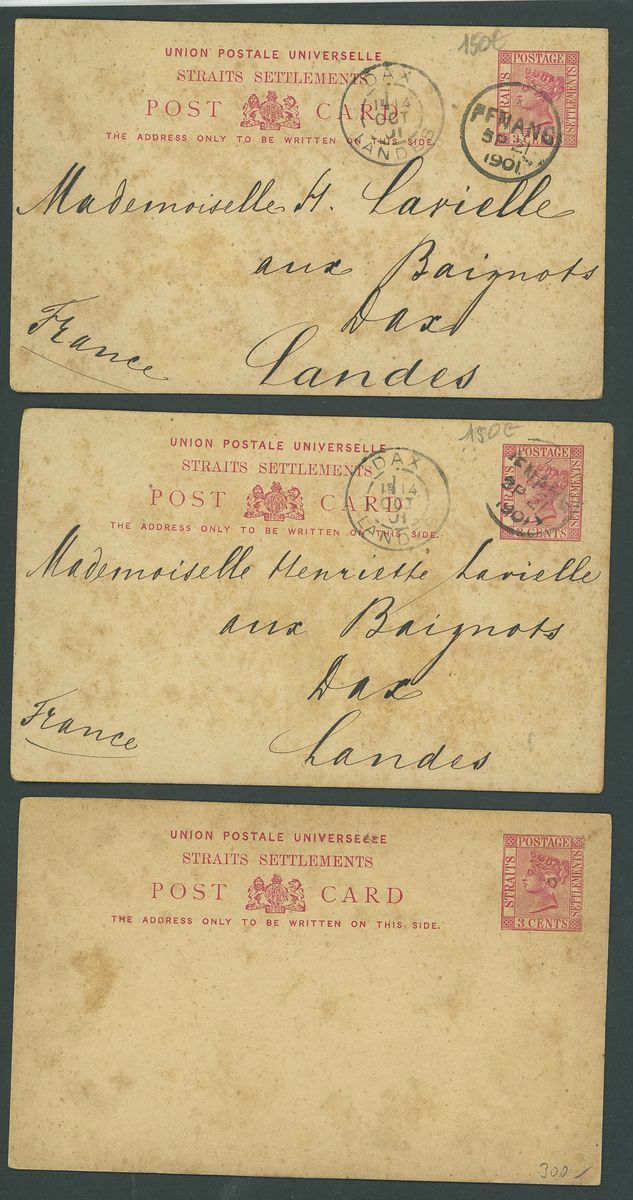 150€
UNION POSTALE UNIVERSELLE
STRAITS SETTLEMENTS
POST CARD
THE ADDRESS ONLY TO BE WRITTEN ON THIS SIDE.
DAX
14
OCT
01
LANDES
POSTAGE
STRAITS
SETTLEMENTS
PENANG
SP 21
1901
Mademoiselle H. Lavielle
aux Baignots
Dax
France
Landes
150€
UNION POSTALE UNIVERSELLE
STRAITS SETTLEMENTS
POST CARD
THE ADDRESS ONLY TO BE WRITTEN ON THIS SIDE.
DAX
14
OCT
01
LANDES
POSTAGE
STRAITS
SETTLEMENTS
CENTS
PENANG
SP 21
1901
Mademoiselle Henriette Lavielle
aux Baignots
Dax
France
Landes
UNION POSTALE UNIVERSELLE
STRAITS SETTLEMENTS
POST CARD
THE ADDRESS ONLY TO BE WRITTEN ON THIS SIDE.
POSTAGE
STRAITS
SETTLEMENTS
3 CENTS
300